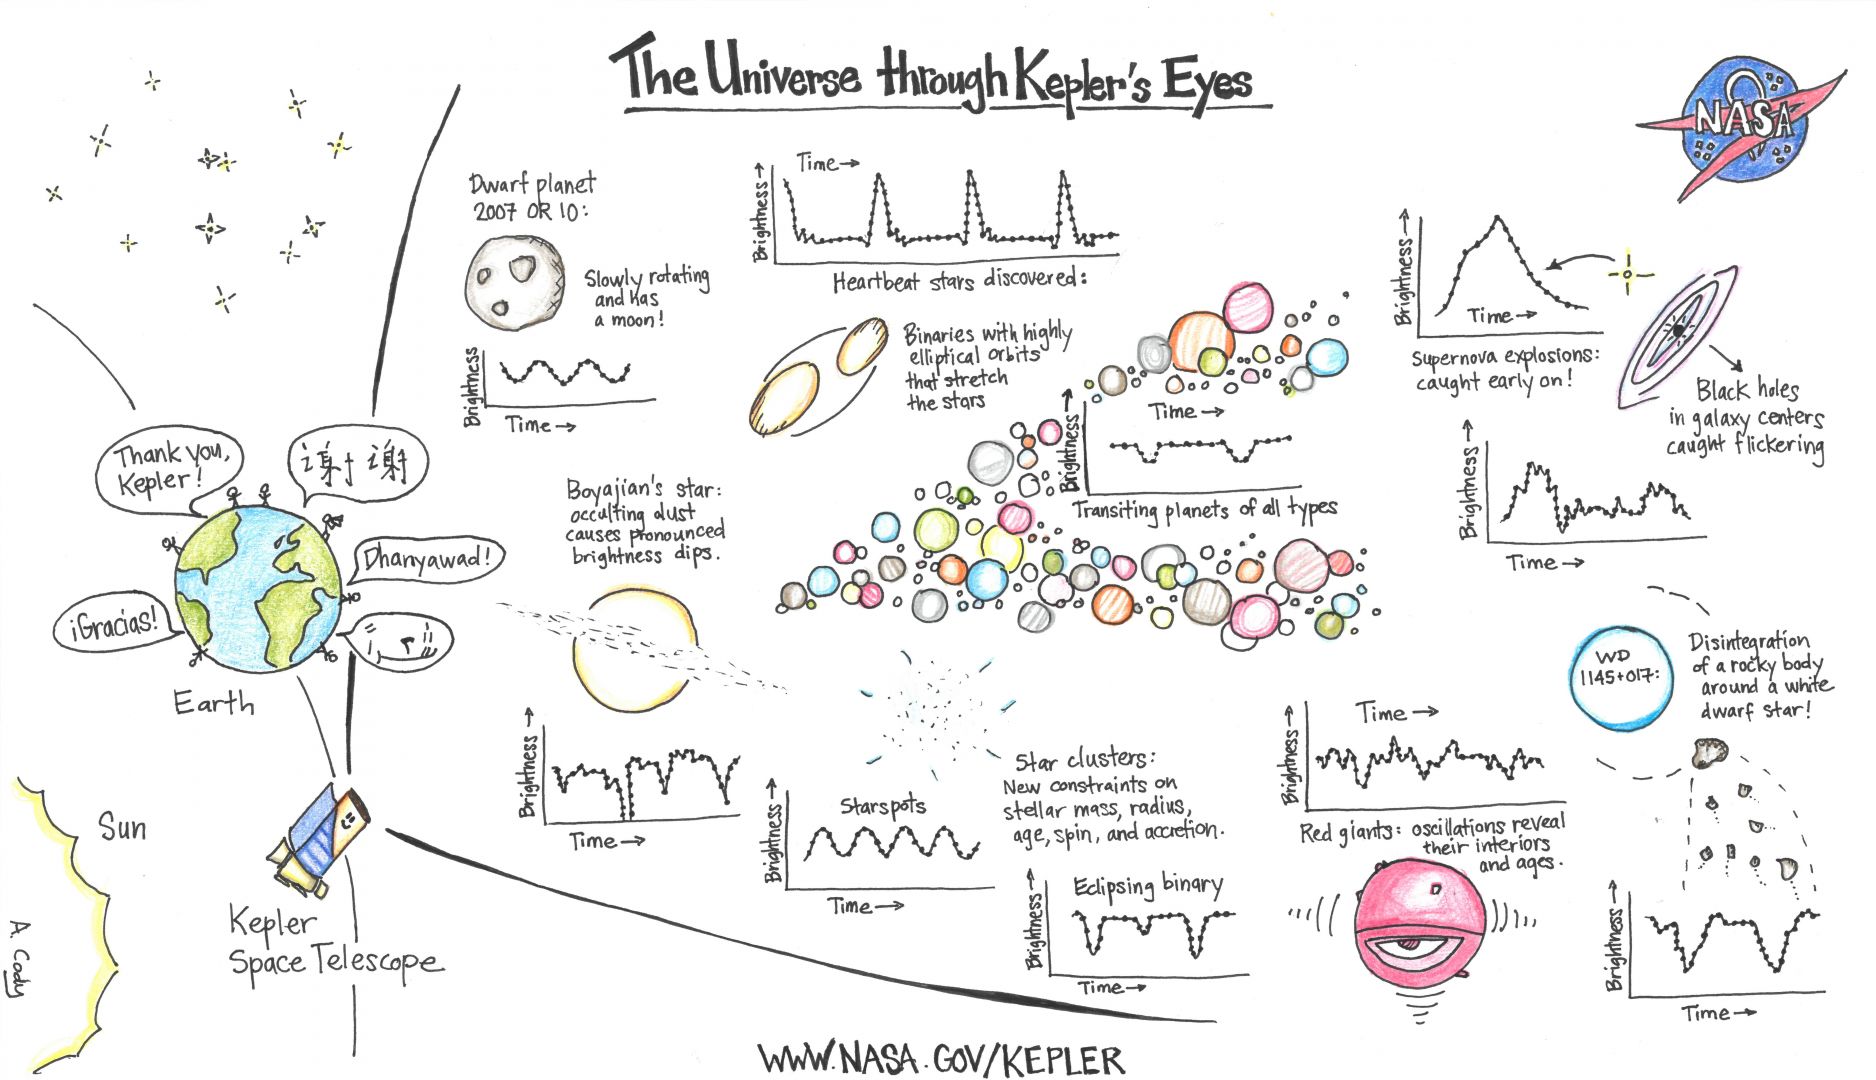 The Universe through Kepler's Eyes
NASA
Dwarf planet
2007 OR 10:
Slowly rotating
and has
a moon!
Brightness
Time→
Time→
Brightness→
Heartbeat stars discovered:
Binaries with highly
elliptical orbits
that stretch
the stars
Brightness→
Time→
Transiting planets of all types
Brightness→
Time→
Supernova explosions:
caught early on!
Black holes
in galaxy centers
caught flickering
Brightness→
Time→
Thank you,
Kepler!
谢谢
Dhanyawad!
¡Gracias!
Earth
Boyajian's star:
occulting dust
causes pronounced
brightness dips.
Brightness→
Time→
Star clusters:
New constraints on
stellar mass, radius,
age, spin, and accretion.
Brightness→
Starspots
Time→
Brightness→
Eclipsing binary
Time→
Brightness→
Time→
Red giants: oscillations reveal
their interiors
and ages.
WD
1145+017:
Disintegration
of a rocky body
around a white
dwarf star!
Brightness→
Time→
Sun
Kepler
Space Telescope
A. Cody
WWW.NASA.GOV/KEPLER